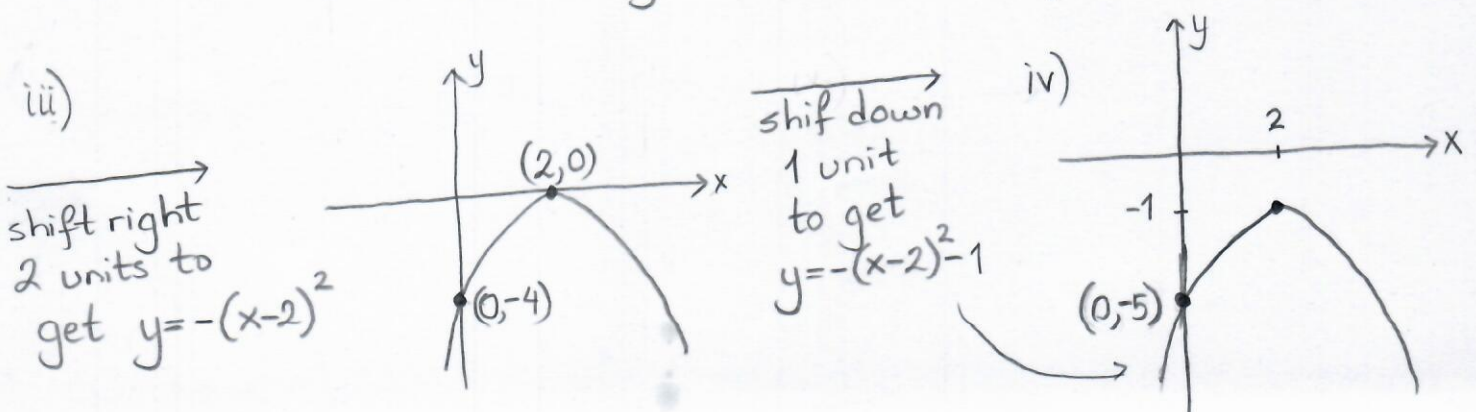 iii)
shift right
2 units to
get y=-(x-2)²
y
(2,0)
x
(0,-4)
shif down
1 unit
to get
y=-(x-2)²-1
iv)
y
2
x
-1
(0,-5)